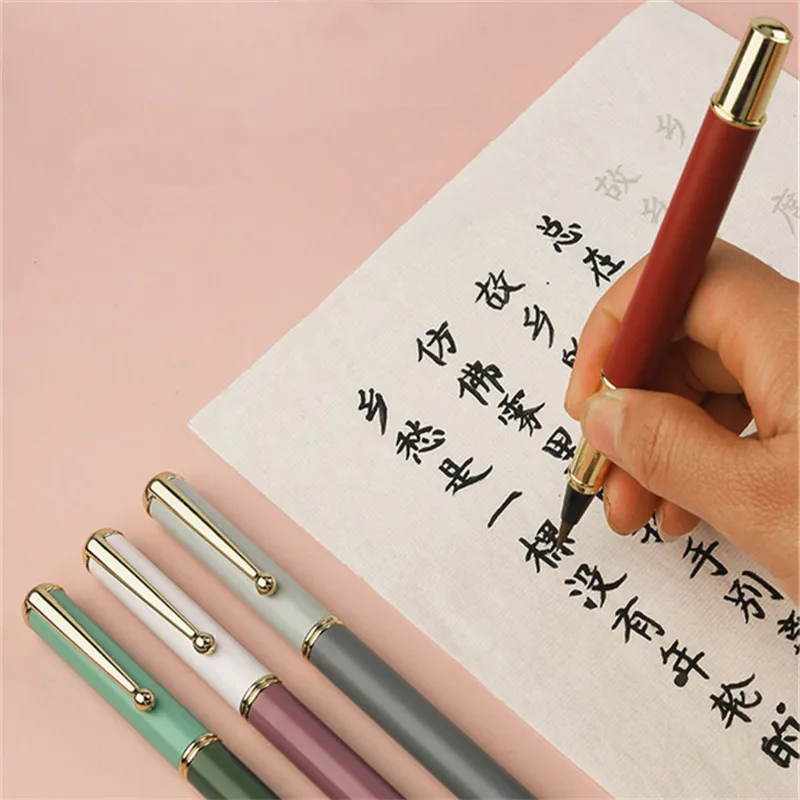 乡
故乡
总在
故乡
仿佛雾里 手别
乡愁是一棵没有年轮的